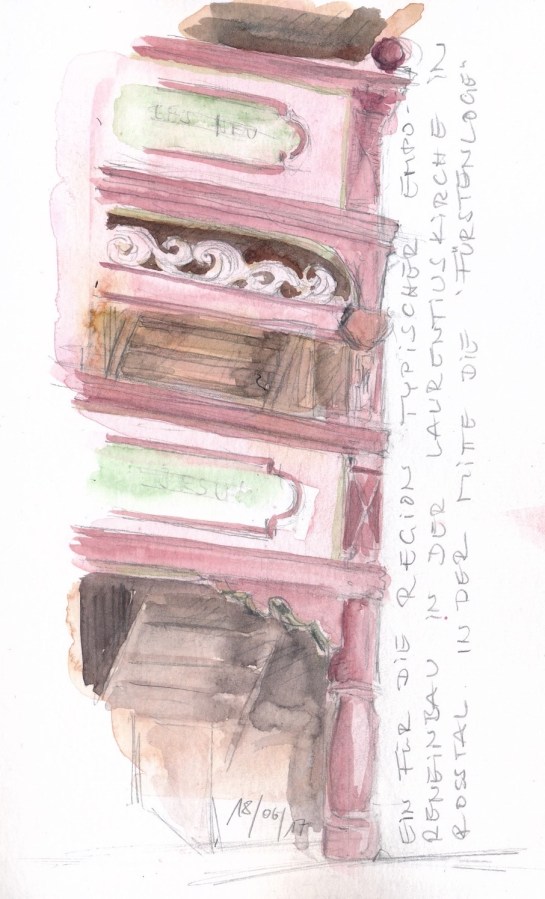 JESU
18/06/17
EIN FÜR DIE REGION TYPISCHER EMPO-
RENEINBAU IN DER LAURENTIUSKIRCHE IN
ROSSTAL. IN DER MITTE DIE 'FÜRSTENLOGE'